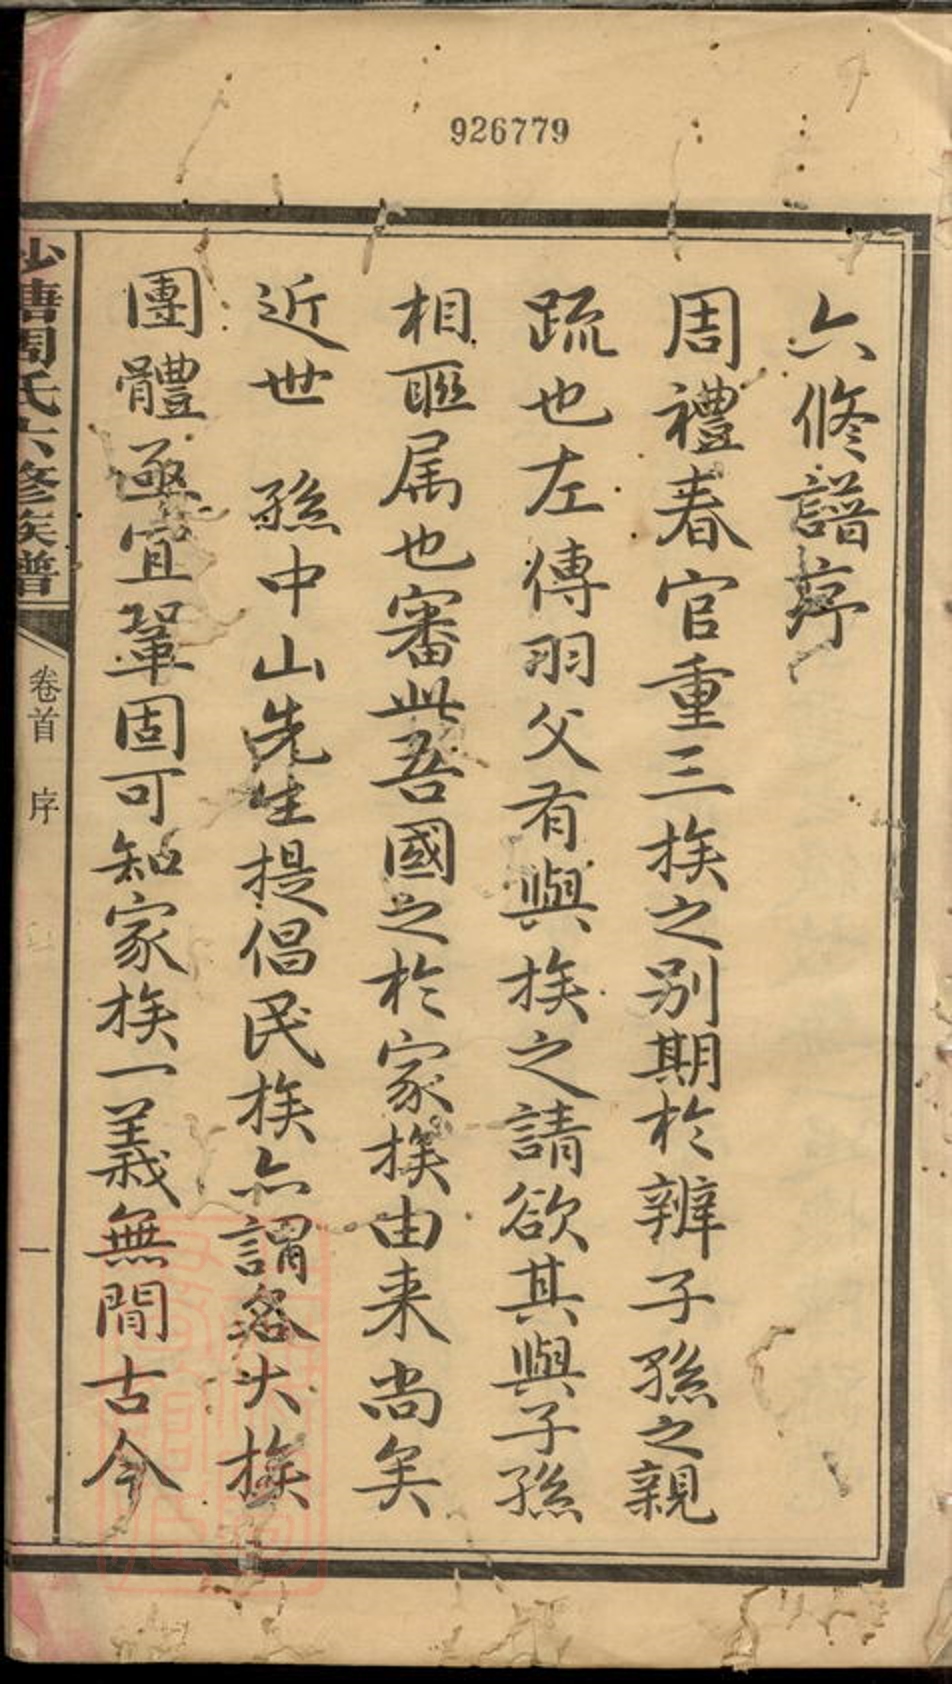 926779
六修譜序
周禮春官重三族之別期於辨子孫之親
疏也左傳羽父有與族之請欲其與子孫
相聯属也審此吾國之於家族由来尚矣
近世 孫中山先生提倡民族亦謂各大族
團體亟宜鞏固可知家族一義無間古今
沙塘周氏六修族譜
卷首 序
一